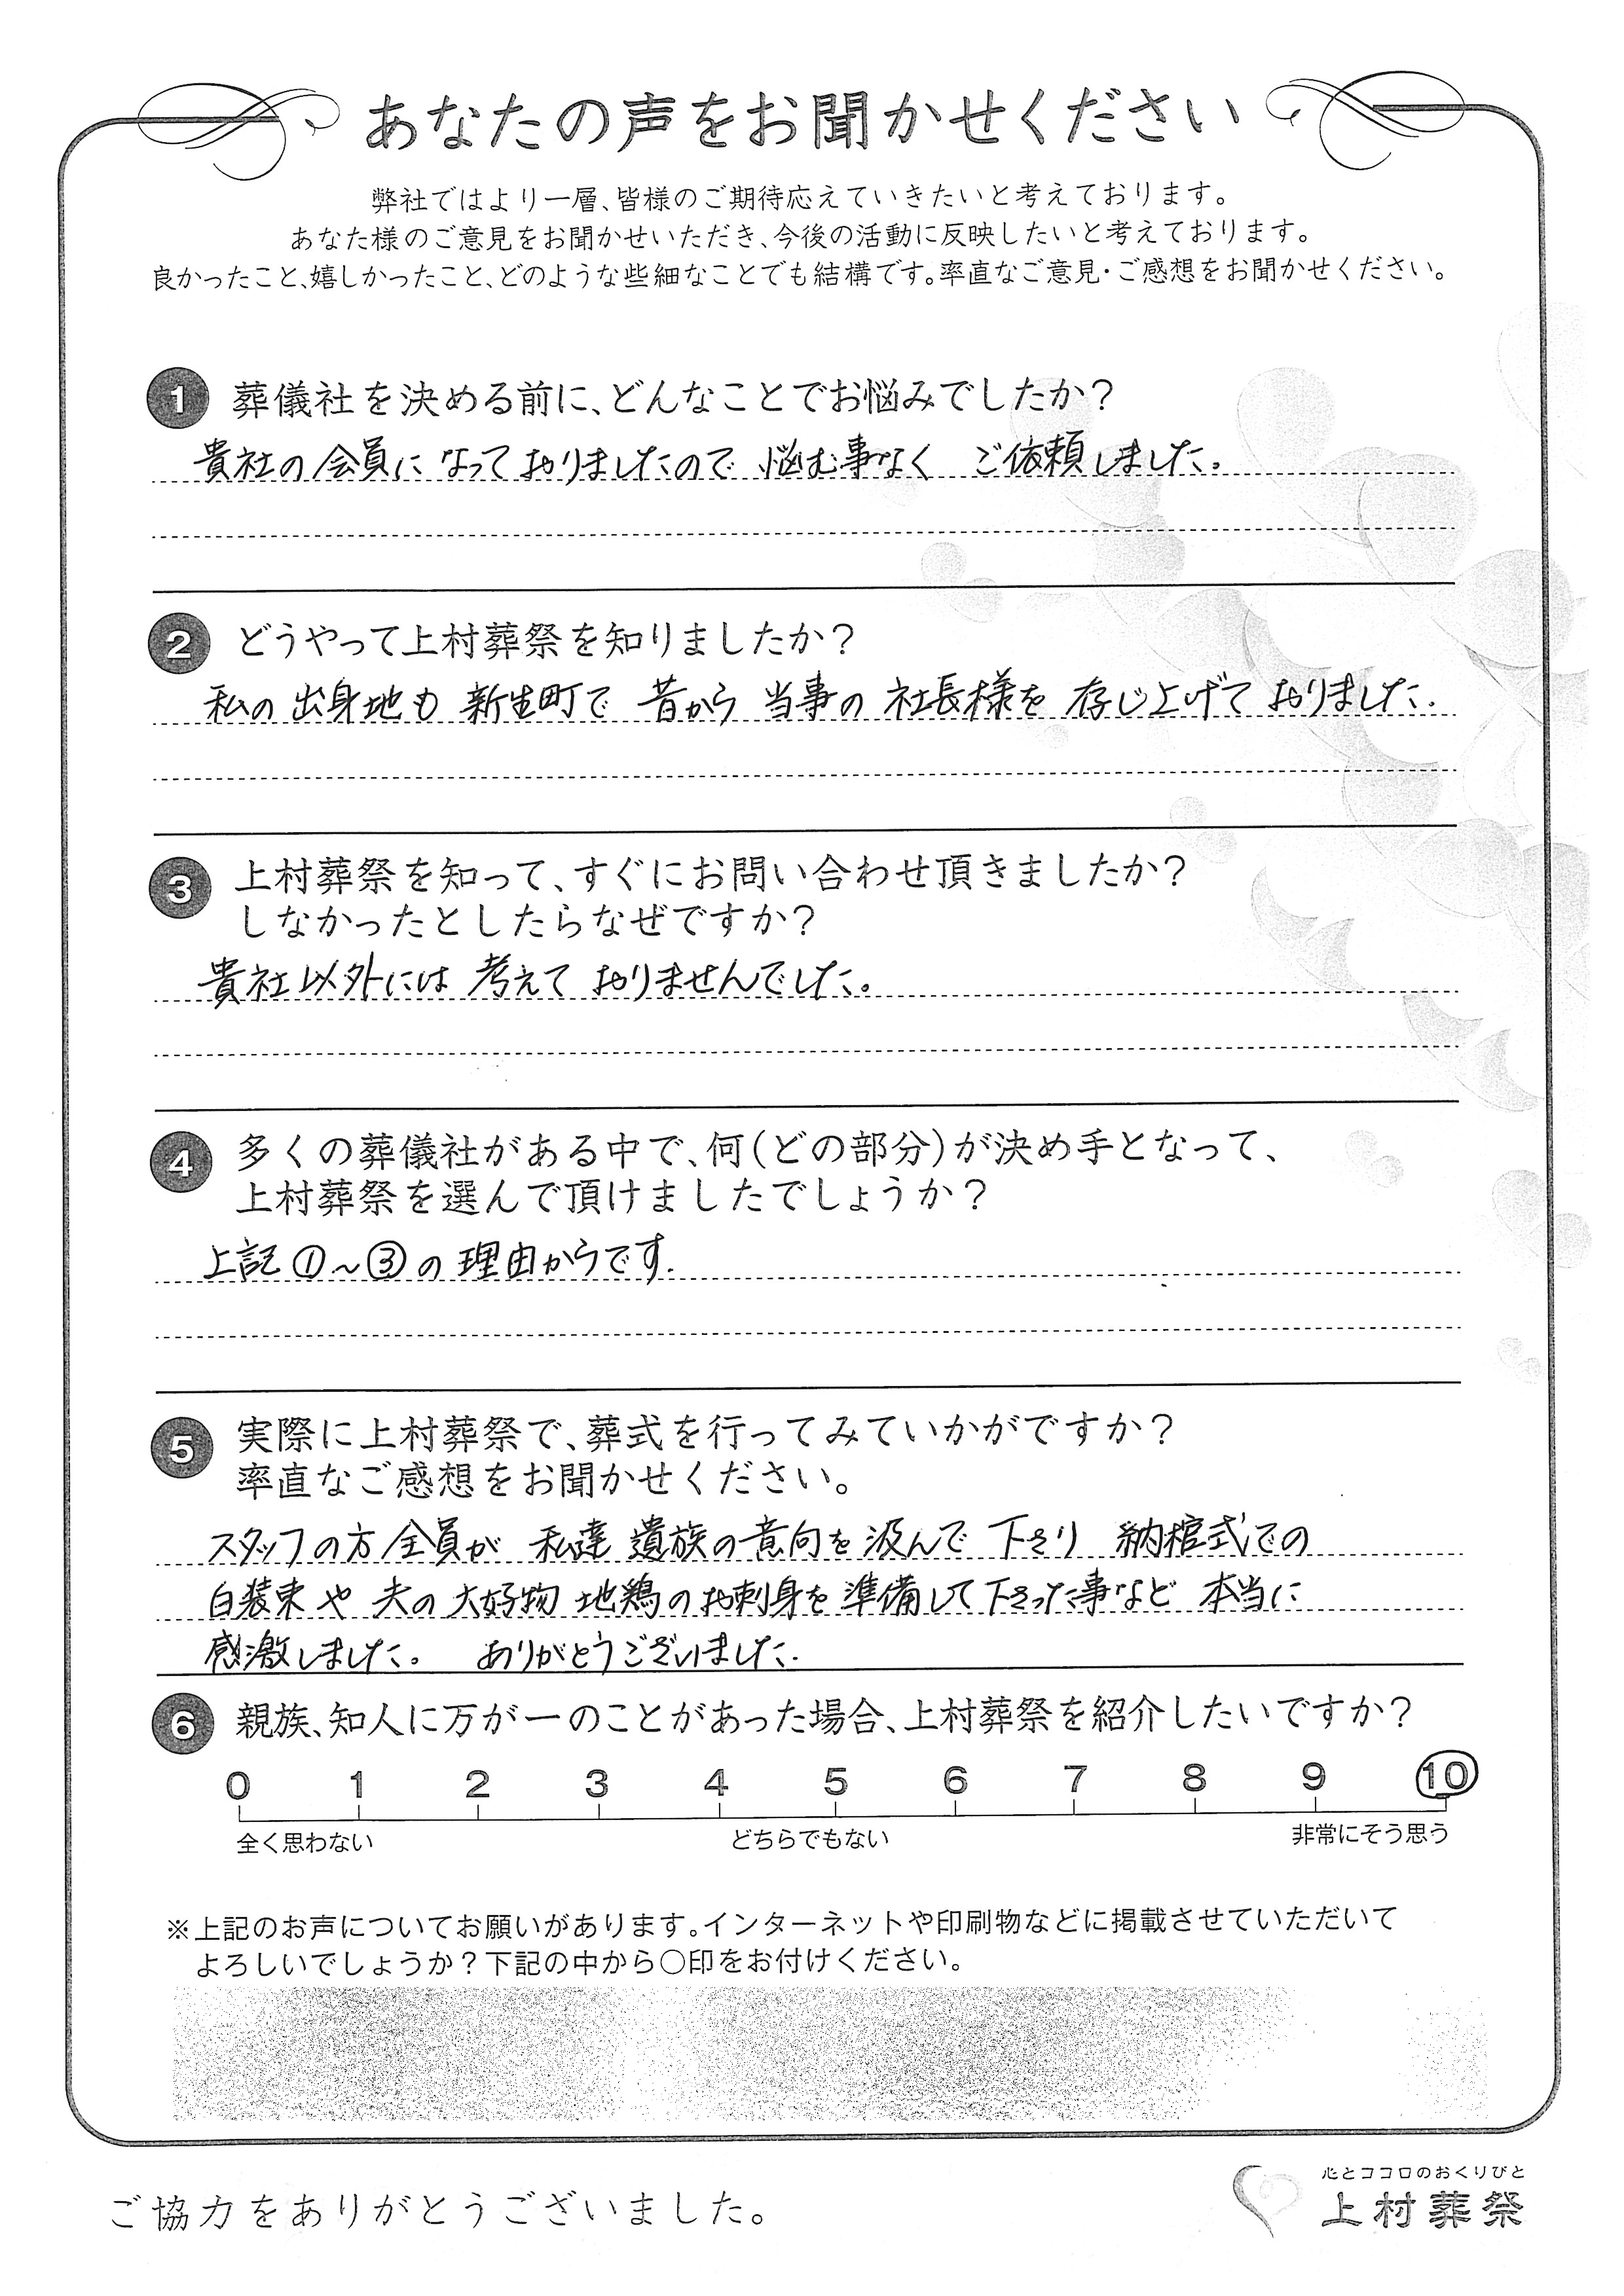 あなたの声をお聞かせください
弊社ではより一層、皆様のご期待応えていきたいと考えております。
あなた様のご意見をお聞かせいただき、今後の活動に反映したいと考えております。
良かったこと、嬉しかったこと、どのような些細なことでも結構です。率直なご意見・ご感想をお聞かせください。
1 葬儀社を決める前に、どんなことでお悩みでしたか？
貴社の会員になっておりましたので 悩む事なく ご依頼しました。
2 どうやって上村葬祭を知りましたか？
私の出身地も 新生町で 昔から 当事の 社長様を 存じ上げて おりました.
3 上村葬祭を知って、すぐにお問い合わせ頂きましたか？
しなかったとしたらなぜですか？
貴社以外には 考えて おりませんでした。
4 多くの葬儀社がある中で、何(どの部分)が決め手となって、
上村葬祭を選んで頂けましたでしょうか？
上記①～③の理由からです.
5 実際に上村葬祭で、葬式を行ってみていかがですか？
率直なご感想をお聞かせください。
スタッフの方全員が 私達 遺族の意向を汲んで 下さり 納棺式での
白装束や 夫の大好物 地鶏のお刺身を準備して下さった事など 本当に
感激しました。 ありがとうございました.
6 親族、知人に万が一のことがあった場合、上村葬祭を紹介したいですか？
0 1 2 3 4 5 6 7 8 9 10
全く思わない どちらでもない 非常にそう思う
※上記のお声についてお願いがあります。インターネットや印刷物などに掲載させていただいて
よろしいでしょうか？下記の中から○印をお付けください。
心とココロのおくりびと
ご協力をありがとうございました。 上村葬祭